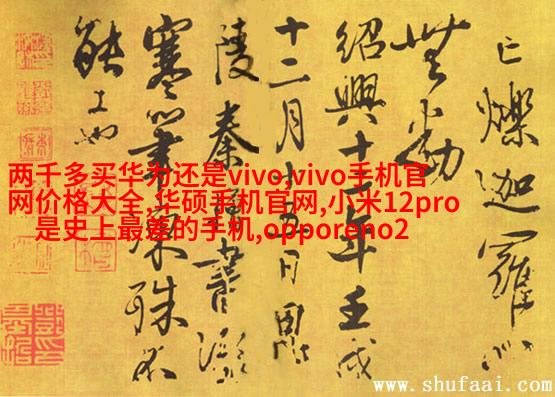 爍迦羅心
無動
紹興十年壬戌
十二月十五日
陵秦書
寒筆凍殊不
能工也
两千多买华为还是vivo,vivo手机官
网价格大全,华硕手机官网,小米12pro
是史上最差的手机,opporeno2
www.shufaai.com